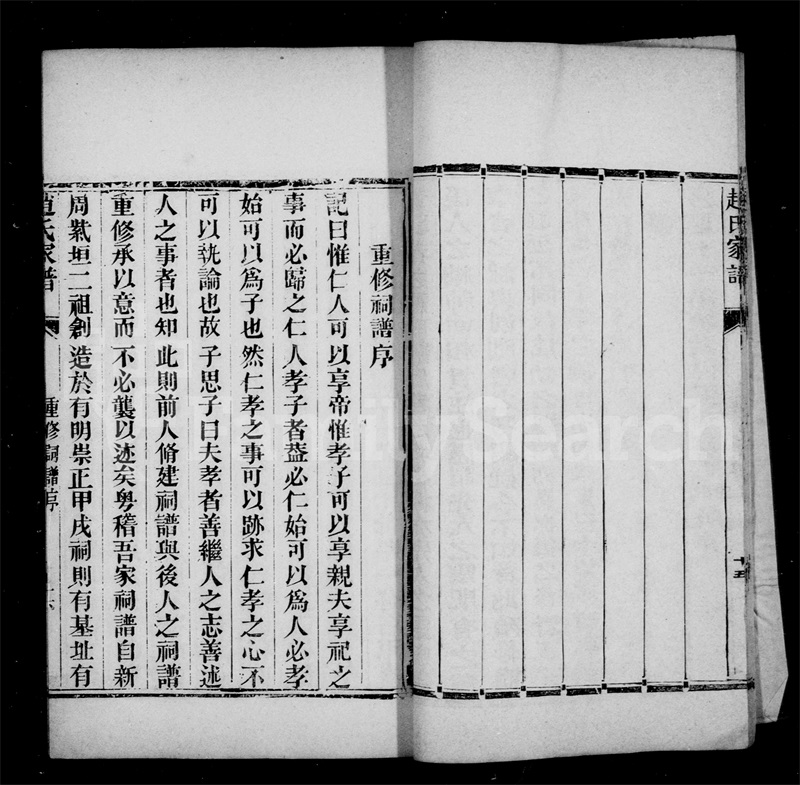 趙氏家譜
十五
重修祠譜序
記曰惟仁人可以享帝惟孝子可以享親夫享祀之
事而必歸之仁人孝子者葢必仁始可以爲人必孝
始可以爲子也然仁孝之事可以跡求仁孝之心不
可以執論也故子思子曰夫孝者善繼人之志善述
人之事者也知此則前人脩建祠譜與後人之祠譜
重修承以意而不必襲以迹矣粤稽吾家祠譜自新
周紫垣二祖創造於有明崇正甲戌祠則有基址有
趙氏家譜
重修祠譜序
FamilySearch